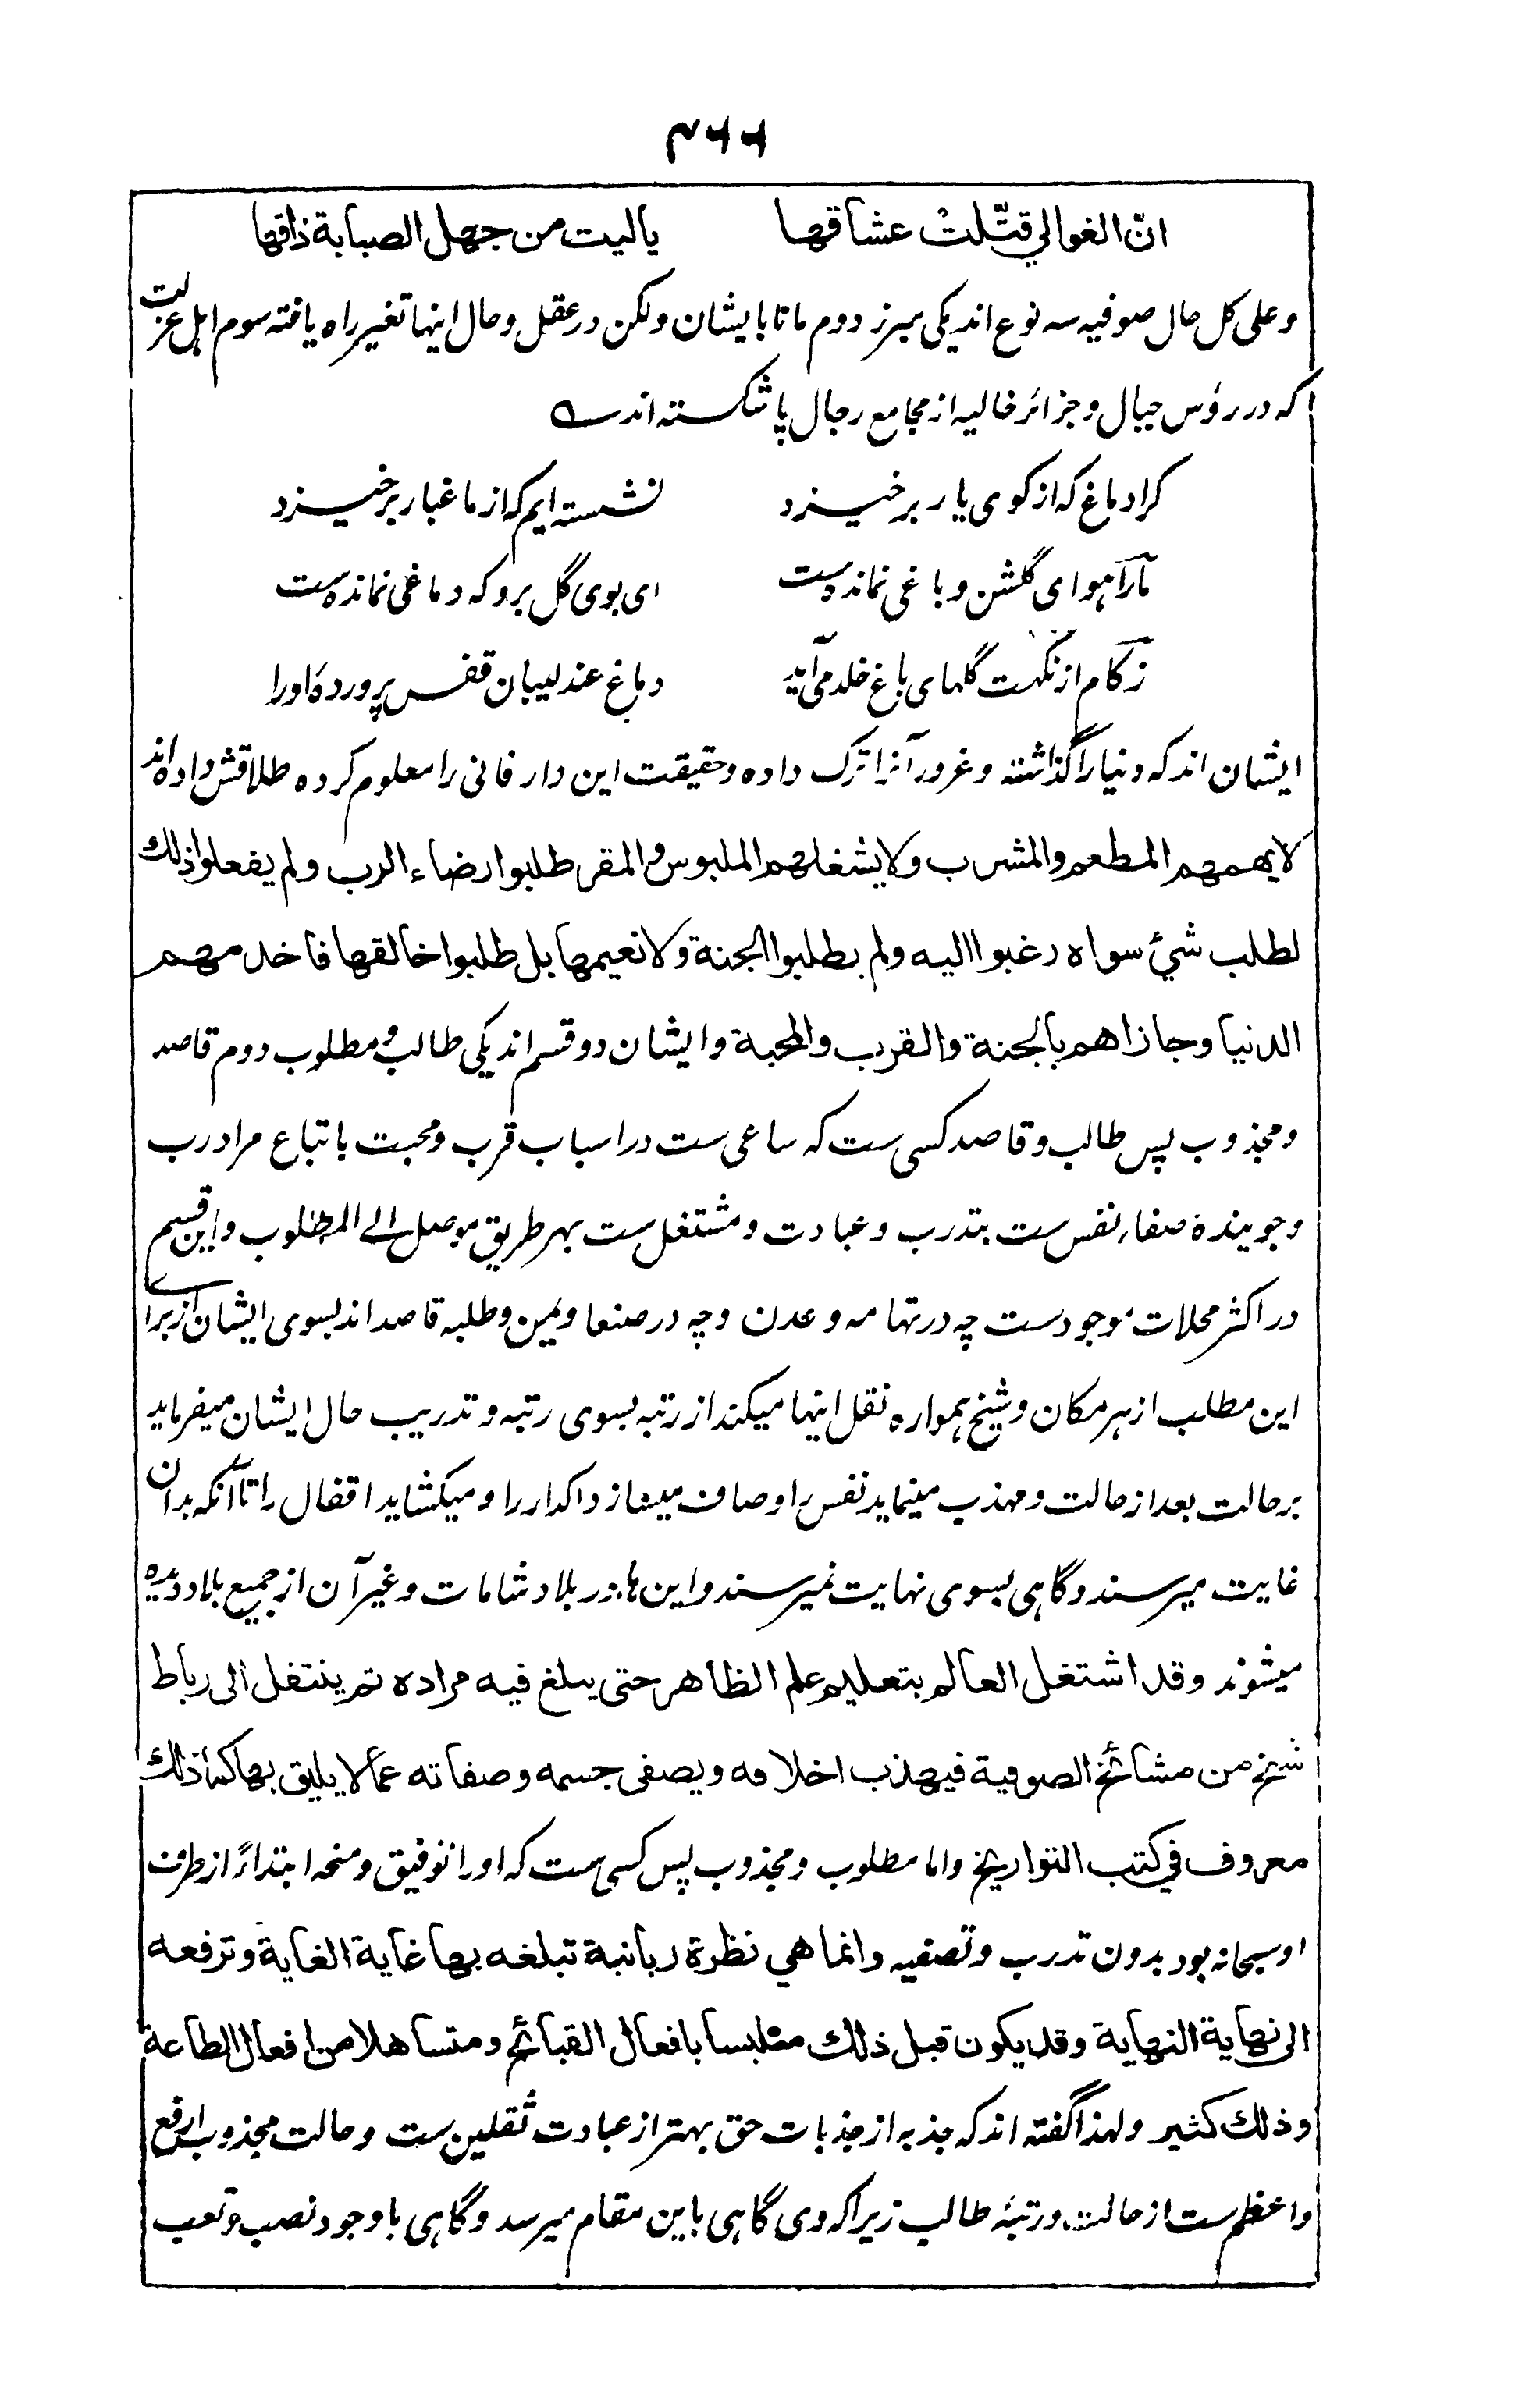 ۳۶۶
انّ الغوالي قتّلتْ عشاقها یالیت من جهل الصبابة ذاقها
وعلی کل حال صوفیه سه نوع اند یکی مبرز دوم ماتا بایشان ولکن در عقل و حال اینها تغیر راه یافته سوم اهل عزلت
که در رؤس جبال و جزائر خالیه از مجامع رجال پا شکسته اند
کرا دماغ که از کوی یار برخیزد نشسته ایم که از ما غبار برخیزد
ما را هوای گلشن و باغی نمانده ست ای بوی گل برو که دماغی نمانده ست
زکام از نکهت گلهای باغ خلد می آید دماغ عندلیبان قفس پروردۀ او را
ایشان اند که دنیا را گذاشته و غرور آنرا ترک داده و حقیقت این دار فانی را معلوم کرده طلاقش داده اند
لایهمهم المطعم والمشرب ولا یشغلهم الملبوس والمقر طلبوا رضاء الرب ولم یفعلوا ذلك
لطلب شئ سواه رغبوا الیه ولم یطلبوا الجنة ولا نعیمها بل طلبوا خالقها فاخدمهم
الدنیا وجازاهم بالجنة والقرب والمحبة و ایشان دو قسم اند یکی طالب و مطلوب دوم قاصد
و مجذوب پس طالب و قاصد کسی ست که ساعی ست در اسباب قرب و محبت باتباع مراد رب
و جویندۀ صفاء نفس ست بتدرب و عبادت و مشتغل ست بهر طریق موصل الے المطلوب و این قسم
در اکثر محلات موجود ست چه در تهامه و عدن و چه در صنعا و یمن و طلبه قاصد اند بسوی ایشان از برای
این مطلب از هر مکان و شیخ همواره نقل اینها میکند از رتبه بسوی رتبه و تدریب حال ایشان میفرماید
بر حالت بعد از حالت و مهذب مینماید نفس را و صاف میسازد اکدار را و میکشاید اقفال را تا آنکه بدان
غایت میرسند و گاهی بسوی نهایت نمیرسند و این ها در بلاد شامات و غیر آن از جمیع بلاد دیده
میشوند وقد اشتغل العالم بتعلیم علم الظاهر حتی یبلغ فیه مراده ثم ینتقل الی رباط
شیخ من مشائخ الصوفیة فیهذب اخلاقه ویصفی جسمه وصفاته عما لا یلیق بها کما ذلك
معروف في کتب التواریخ و اما مطلوب و مجذوب پس کسی ست که او را توفیق و منحه ابتداءً از طرف
او سبحانه بود بدون تدرب و تصفیه وانما هي نظرة ربانیة تبلغه بها غایة الغایة وترفعه
الی نهایة النهایة وقد یکون قبل ذلك متلبسا بافعال القبائح ومتساهلا من افعال الطاعة
وذلك کثیر و لهذا گفته اند که جذبه از جذبات حق بهتر از عبادت ثقلین ست و حالت مجذوب ارفع
و اعظم ست از حالت و رتبۀ طالب زیرا که وی گاهی باین مقام میرسد و گاهی با وجود نصب و تعب